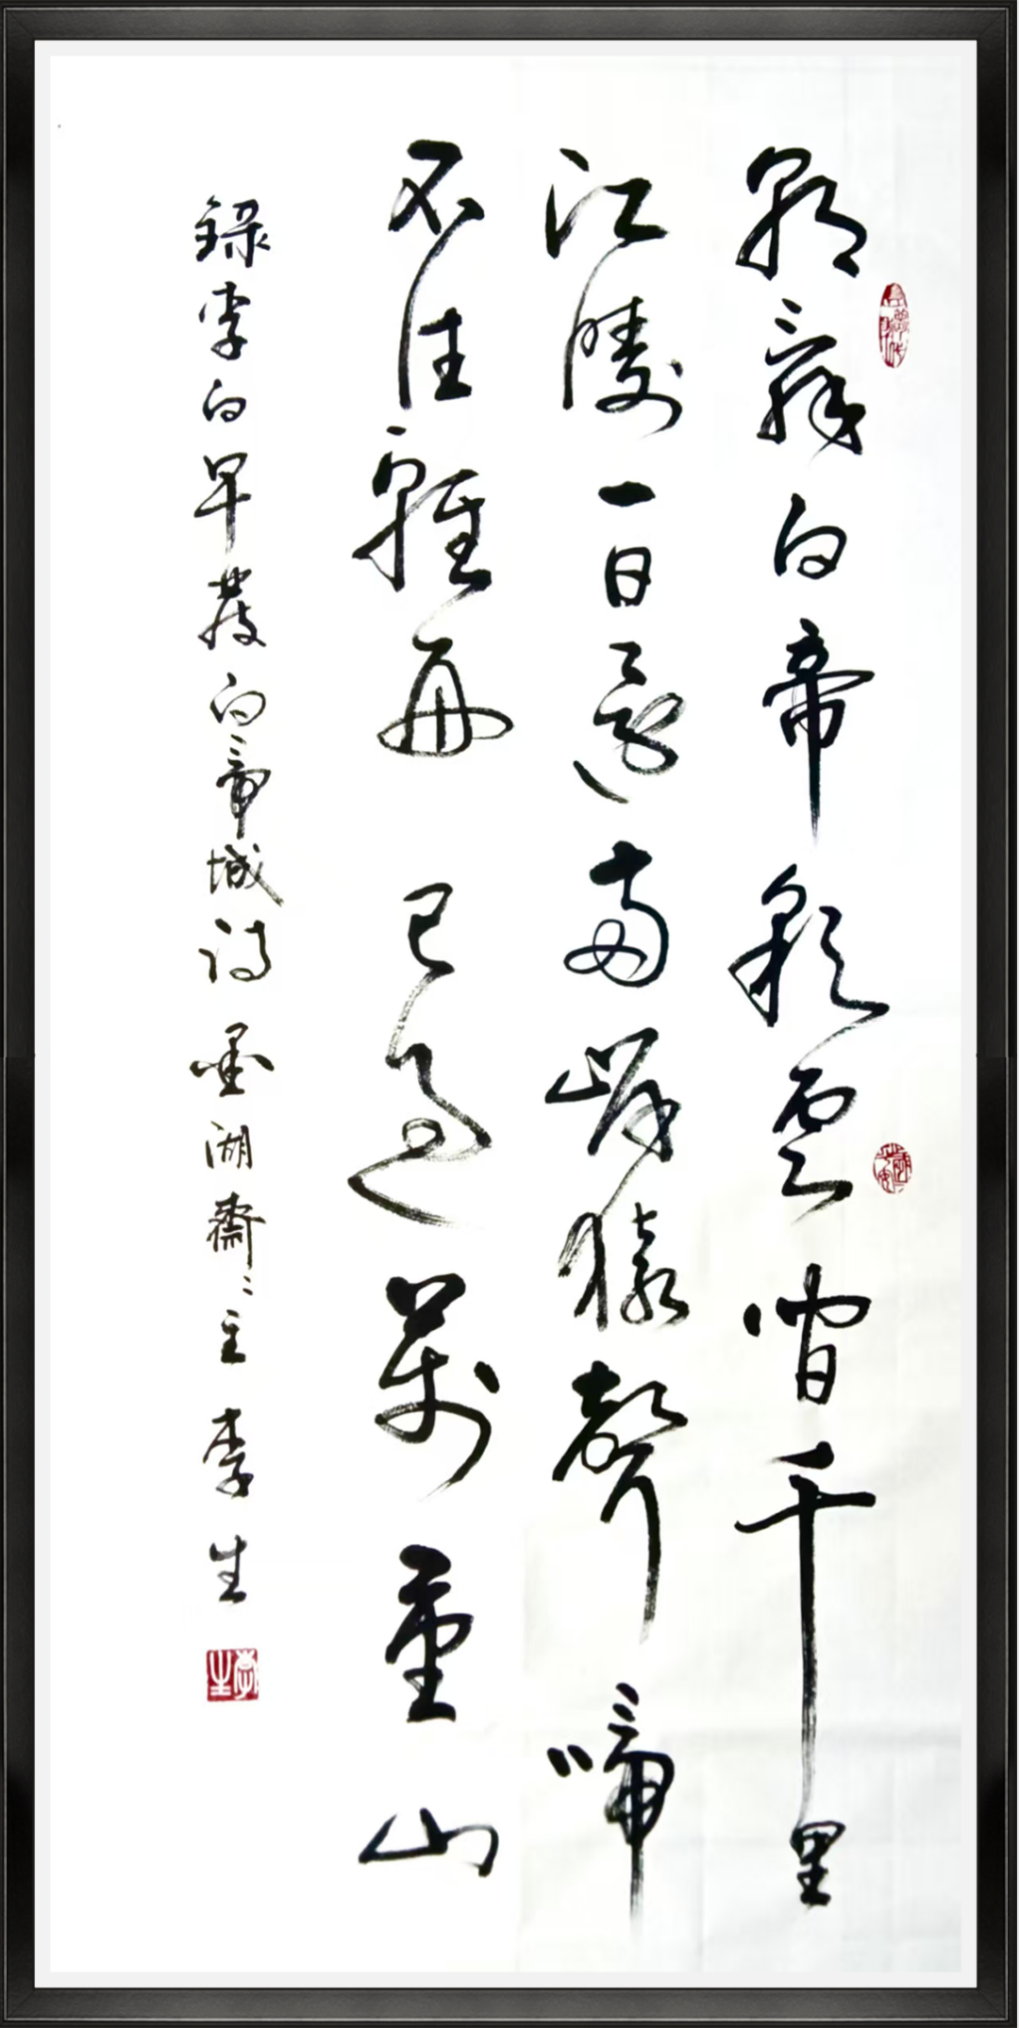 朝辭白帝彩雲間千里
江陵一日還兩岸猿聲啼
不住輕舟已過萬重山
錄李白早發白帝城詩 墨湖齋〻主 李生
李生